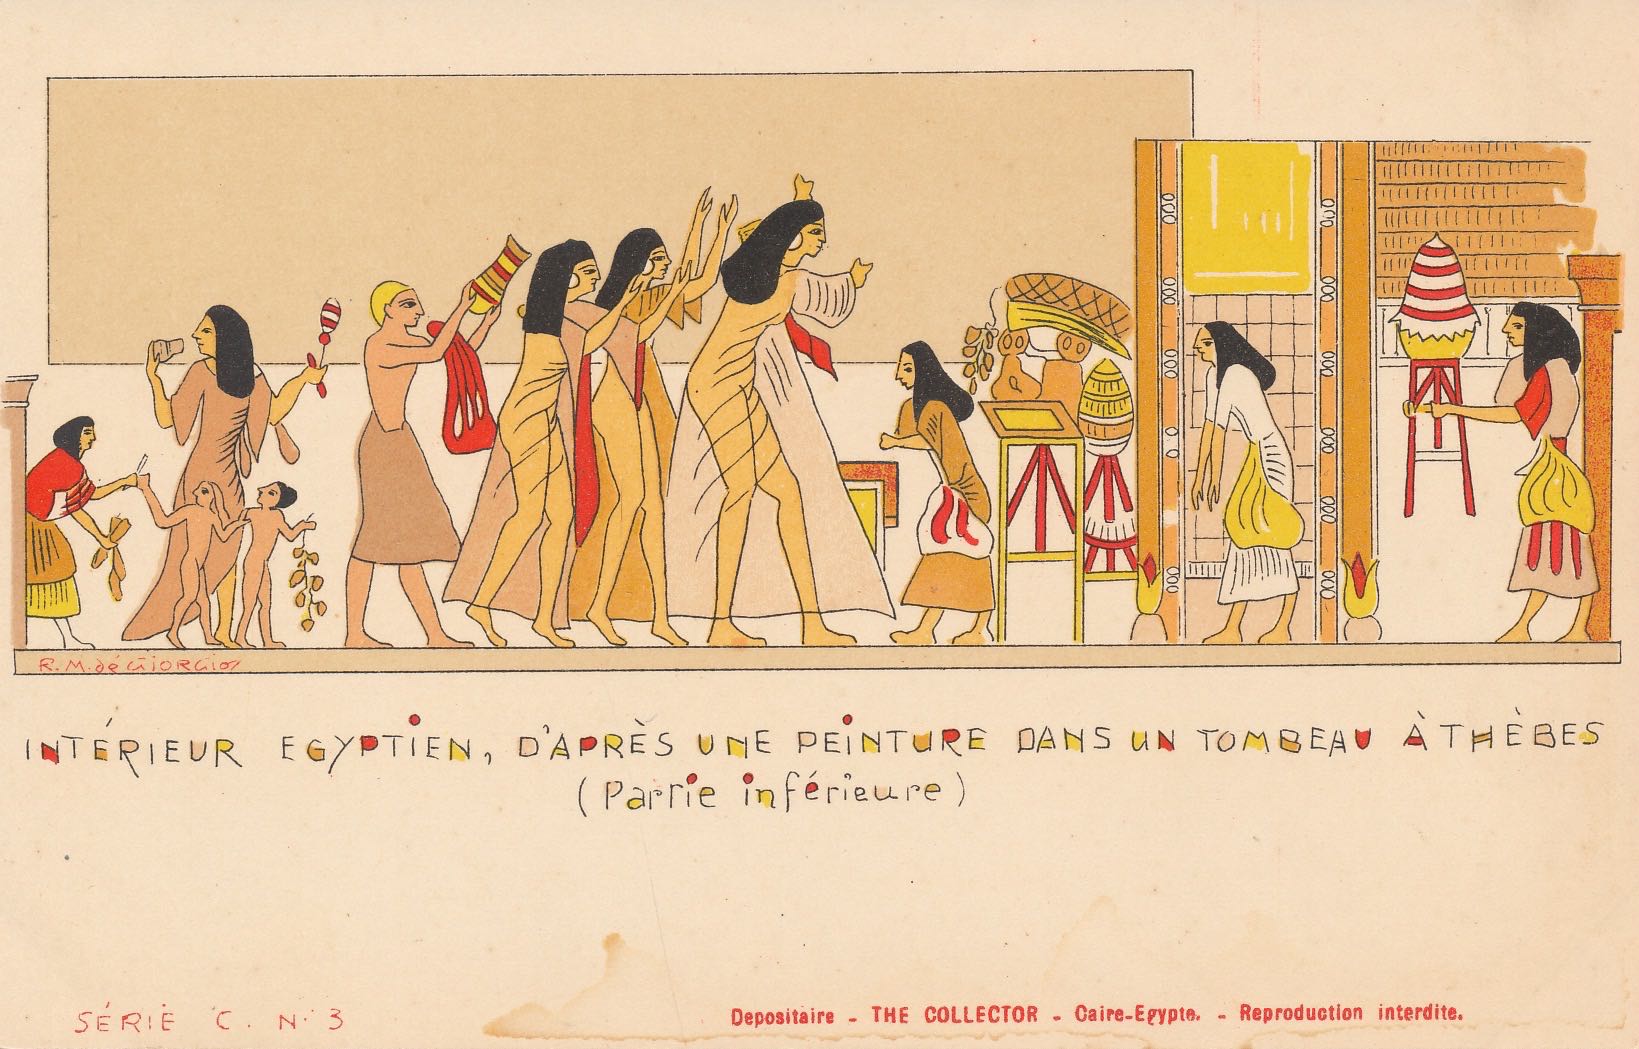 R. M. de GIORGIO
INTÉRIEUR EGYPTIEN, D'APRÈS UNE PEINTURE DANS UN TOMBEAU À THÈBES
(Partie inférieure)
SÉRIE C. N. 3
Depositaire - THE COLLECTOR - Caire-Egypte. - Reproduction interdite.